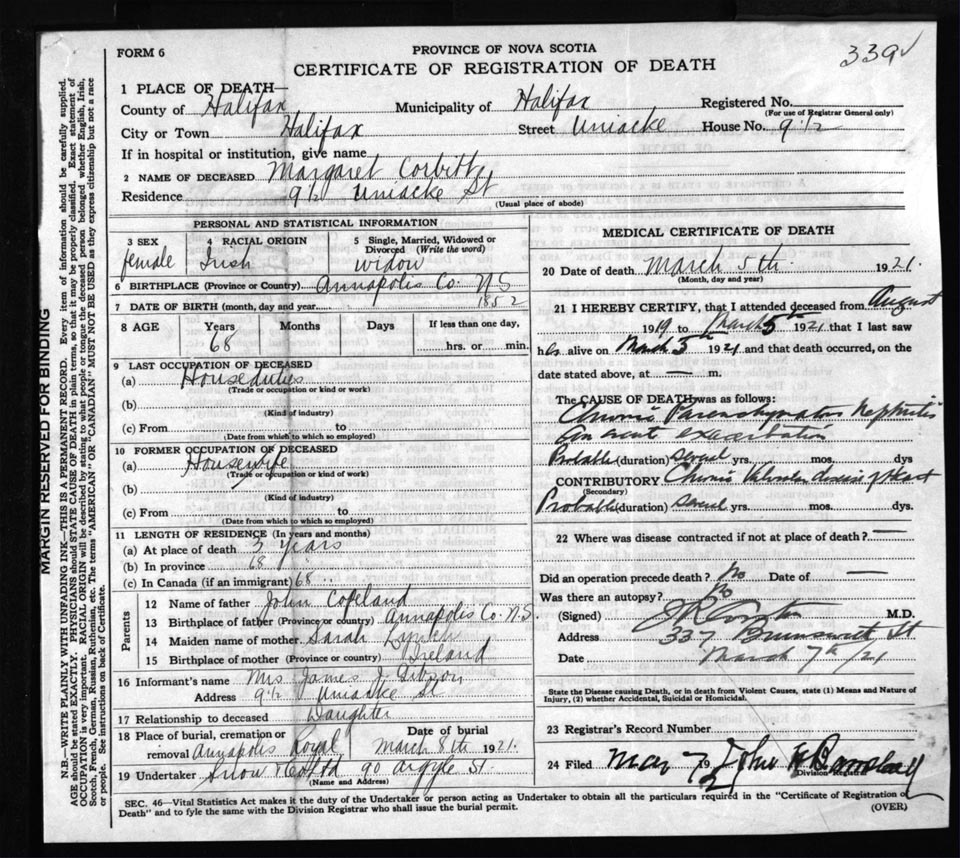 PROVINCE OF NOVA SCOTIA
FORM 6
CERTIFICATE OF REGISTRATION OF DEATH
339
1 PLACE OF DEATH—
County of Halifax Municipality of Halifax Registered No.
(For use of Registrar General only)
City or Town Halifax Street Uniacke House No. 9 1/2
If in hospital or institution, give name
2 NAME OF DECEASED Margaret Corbitt
Residence 9 1/2 Uniacke St
(Usual place of abode)
PERSONAL AND STATISTICAL INFORMATION
3 SEX female
4 RACIAL ORIGIN Irish
5 Single, Married, Widowed or Divorced (Write the word) widow
6 BIRTHPLACE (Province or Country) Annapolis Co. N S
7 DATE OF BIRTH (month, day and year) 1852
8 AGE Years Months Days If less than one day,
68 hrs. or min.
9 LAST OCCUPATION OF DECEASED
(a) Houseduties
(Trade or occupation or kind or work)
(b)
(Kind of industry)
(c) From to
(Date from which to which so employed)
10 FORMER OCCUPATION OF DECEASED
(a) Housewife
(Trade or occupation or kind of work)
(b)
(Kind of industry)
(c) From to
(Date from which to which so employed)
11 LENGTH OF RESIDENCE (In years and months)
(a) At place of death 3 years
(b) In province 68
(c) In Canada (if an immigrant) 68
Parents
12 Name of father John Copeland
13 Birthplace of father (Province or country) Annapolis Co. N.S.
14 Maiden name of mother Sarah Lynch
15 Birthplace of mother (Province or country) Ireland
16 Informant's name Mrs James J.
Address 9 1/2 Uniacke St
17 Relationship to deceased Daughter
18 Place of burial, cremation or removal Annapolis Royal
Date of burial March 8th 1921.
19 Undertaker Snow & Co Ltd 90 Argyle St.
(Name and Address)
MEDICAL CERTIFICATE OF DEATH
20 Date of death March 5th 1921.
(Month, day and year)
21 I HEREBY CERTIFY, that I attended deceased from August
1919 to March 5th 1921 that I last saw
h alive on March 5th 1921 and that death occurred, on the
date stated above, at — m.
The CAUSE OF DEATH was as follows:
Chronic Parenchymatous Nephritis
an acute exacerbation
Probable (duration) several yrs. mos. dys
CONTRIBUTORY Chronic Valvular disease of Heart
(Secondary)
Probable (duration) several yrs. mos. dys.
22 Where was disease contracted if not at place of death? —
Did an operation precede death? No Date of —
Was there an autopsy? No
(Signed) M.D.
Address 337 Brunswick St
Date March 7th/21
State the Disease causing Death, or in death from Violent Causes, state (1) Means and Nature of
Injury, (2) whether Accidental, Suicidal or Homicidal.
23 Registrar's Record Number
24 Filed Mar 7 192 John
Division Registrar
SEC. 46—Vital Statistics Act makes it the duty of the Undertaker or person acting as Undertaker to obtain all the particulars required in the "Certificate of Registration of
Death" and to fyle the same with the Division Registrar who shall issue the burial permit. (OVER)
MARGIN RESERVED FOR BINDING
N.B.—WRITE PLAINLY WITH UNFADING INK—THIS IS A PERMANENT RECORD. Every item of information should be carefully supplied.
AGE should be stated EXACTLY. PHYSICIANS should STATE CAUSE OF DEATH in plain terms, so that it may be properly classified. Exact statement of
OCCUPATION is very important. RACIAL ORIGIN will be described by stating to what people or tongue the deceased person belonged whether English, Irish,
Scotch, French, German, Russian, Ruthenian, etc. The terms "AMERICAN" OR "CANADIAN" MUST NOT BE USED as they express citizenship but not a race
or people. See instructions on back of Certificate.